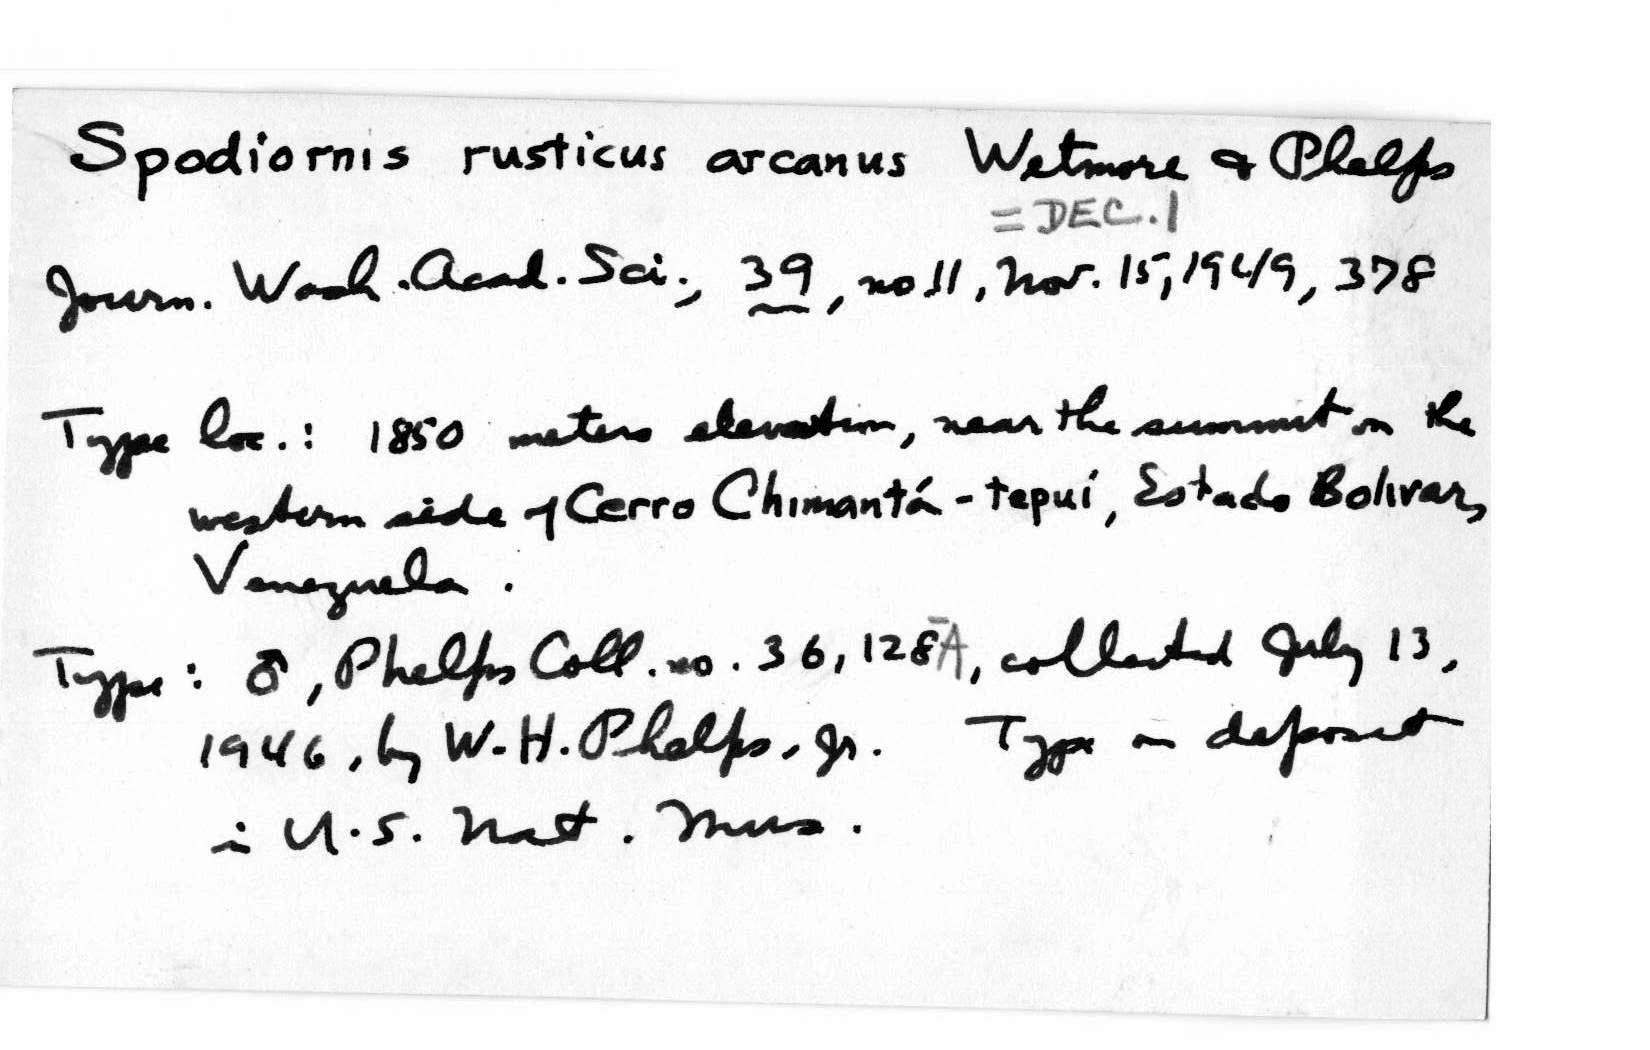 Spodiornis rusticus arcanus Wetmore & Phelps
= DEC. 1
Journ. Wash. Acad. Sci., 39, no 11, Nov. 15, 1949, 378
Type loc.: 1850 meters elevation, near the summit on the
western side of Cerro Chimantá-tepuí, Estado Bolivar,
Venezuela.
Type: ♂, Phelps Coll. no. 36,128A, collected July 13,
1946, by W. H. Phelps, Jr. Type on deposit
in U.S. Nat. Mus.